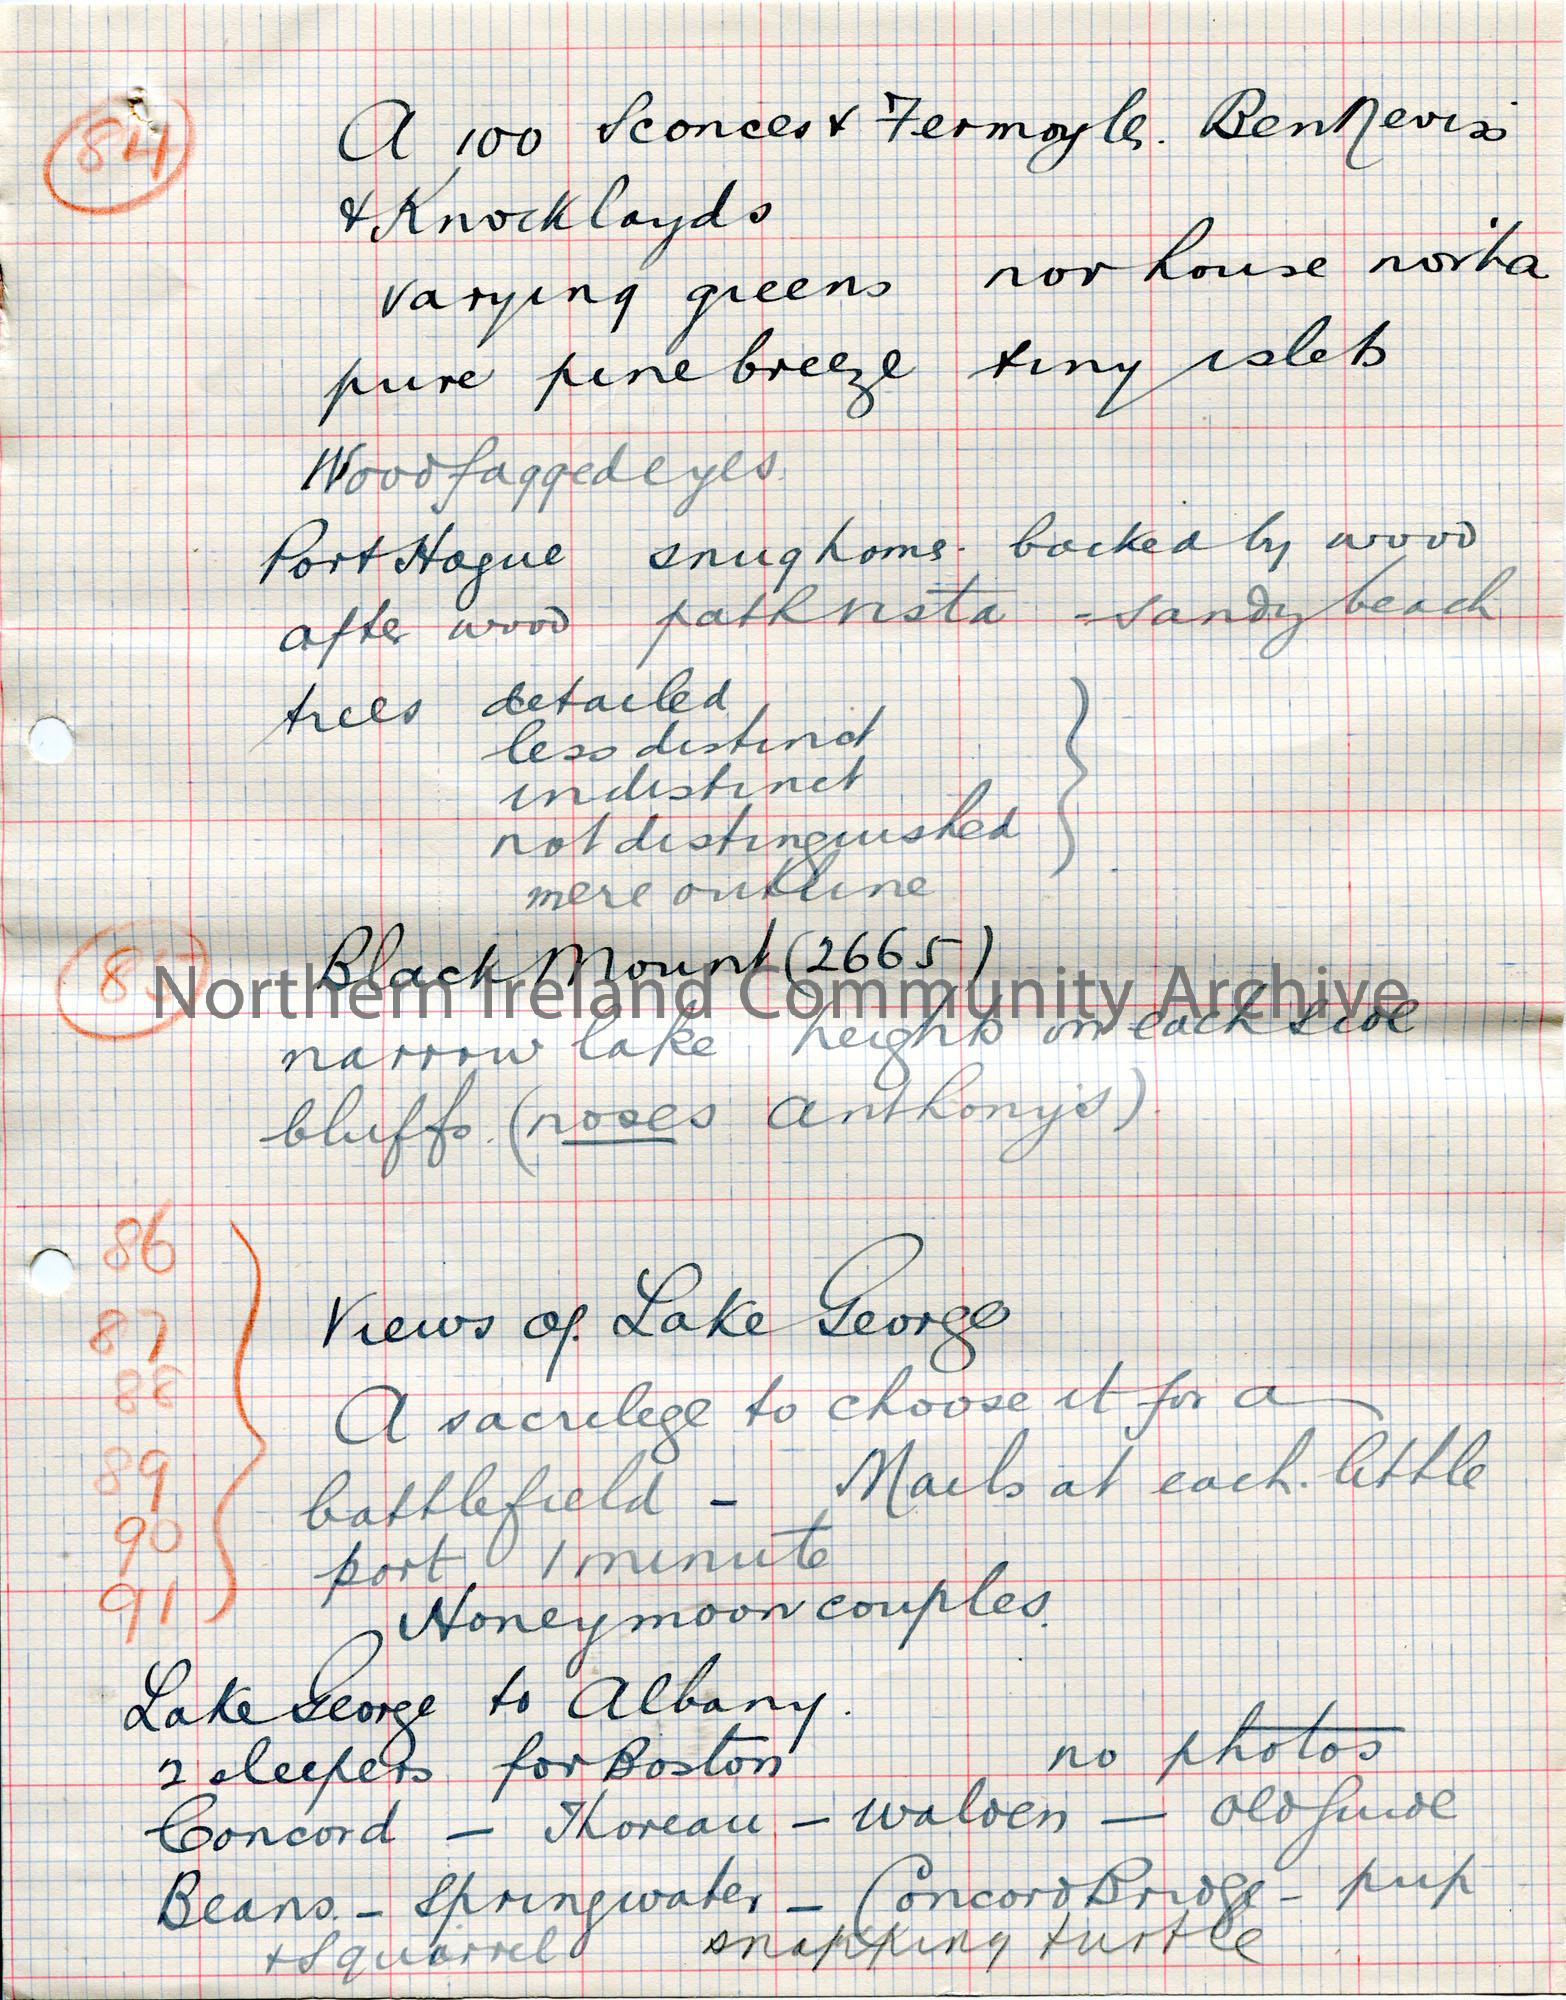 84 A 100 Sconces & Fermoyle. Ben Nevis
& Knocklayds
varying greens nor house nor ha
pure pine breeze tiny islets
Wood fagged eyes.
Port Hague snug home. backed by wood
after wood path vista - sandy beach
trees detailed
less distinct
indistinct
not distinguished
mere outline
85 Black Mount (2665)
Northern Ireland Community Archive
narrow lake heights on each side
bluffs. (noses Anthony's).
86
87 Views of Lake George
88 A sacrilege to choose it for a
89 battlefield - Mails at each. little
90 port 1 minute
91 Honeymoon couples.
Lake George to Albany.
2 sleepers for Boston no photos
Concord - Thoreau - Walden - old guide
Beans. - Spring water - Concord Bridge - pup
+ squirrel snapping turtle